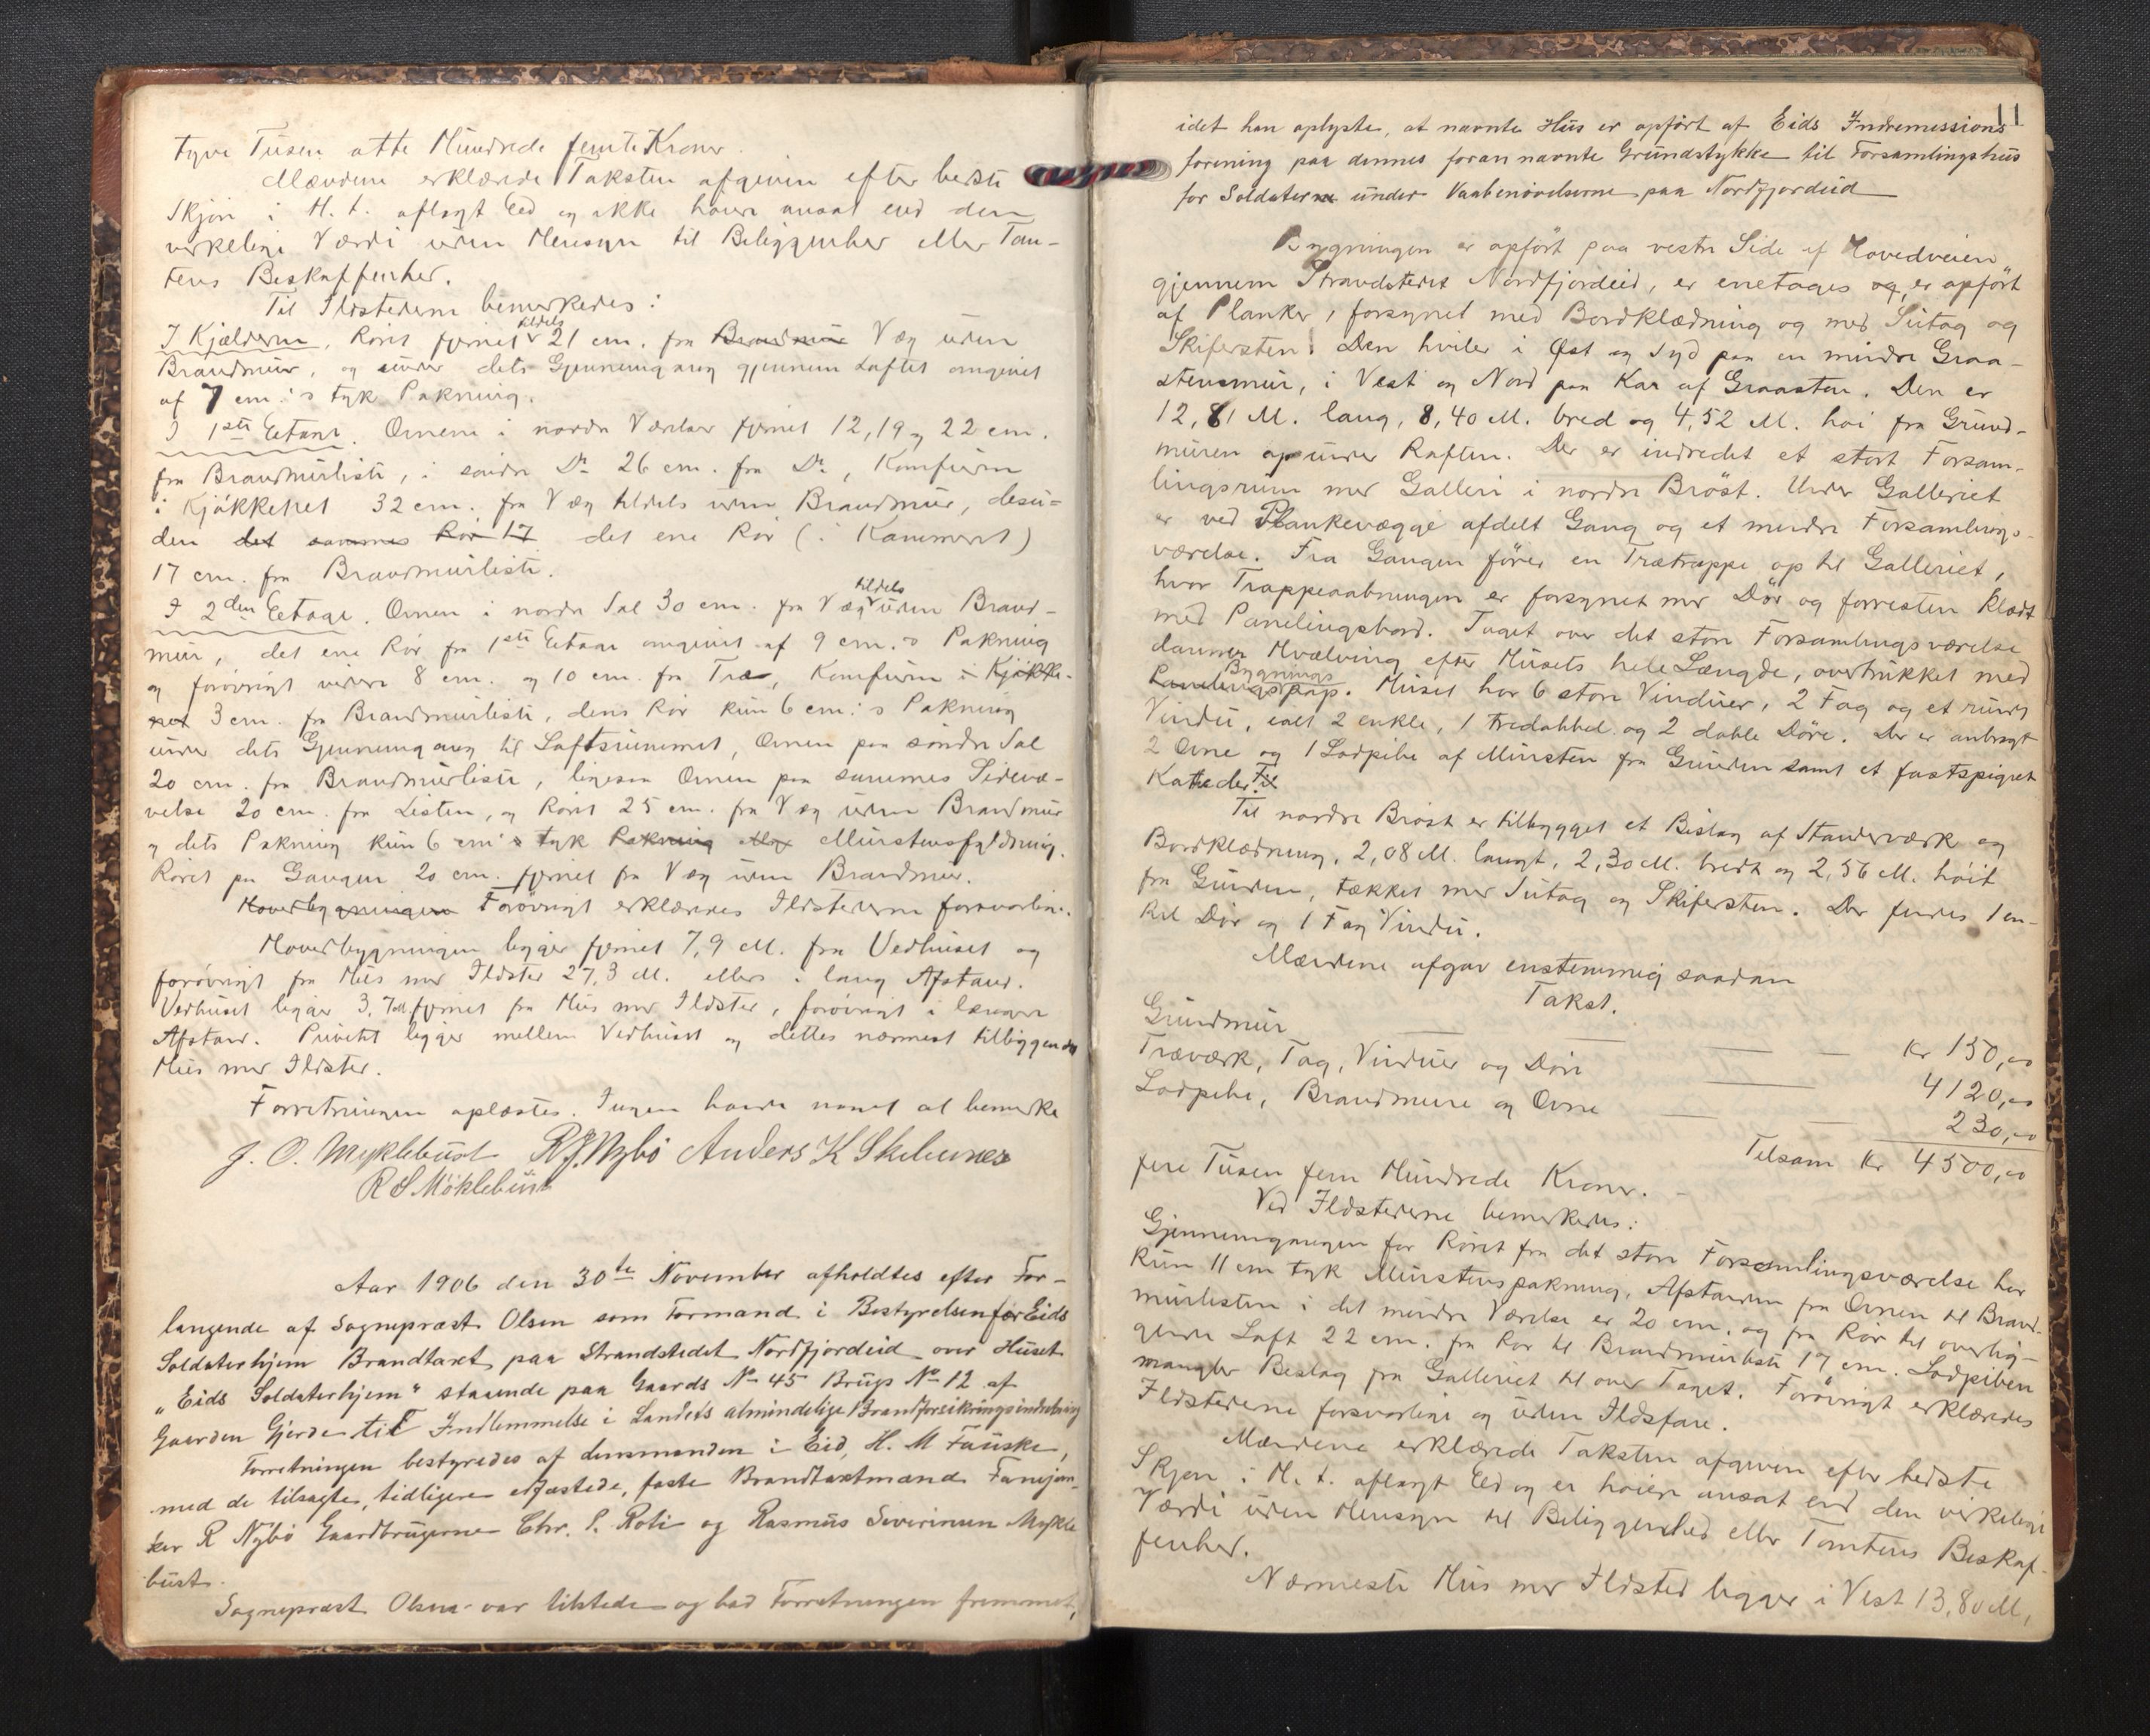 tyve Tusen otte Hundrede femti Kroner.
Mændene erklærede Taksten afgiven efter bedste
Skjøn i H. t. aflagt Ed og ikke høiere ansat end den
virkelige Værdi uden Hensyn til Beliggenhed eller Tom-
tens Beskaffenhed.
Til Ildstederne bemerkedes:
I Kjælderen. Røret fjernet tildels 21 cm. fra Brandmur Væg uden
Brandmur, og under dets Gjennemgang gjennem Loftet omgivet
af 7 cm.'s tyk Pakning.
I 1ste Etage. Ovnene i nordre Værelser fjernet 12, 19 og 22 cm.
fra Brandmurliste, i søndre Do 26 cm. fra Do, Komfuren
i Kjøkkenet 32 cm. fra Væg tildels uden Brandmur, desu-
den det sammes Rør 17 det ene Rør (i Kammeret)
17 cm. fra Brandmurliste.
I 2den Etage. Ovnen i nordre Sal 30 cm. fra Væg tildels uden Brand-
mur, det ene Rør fra 1ste Etage omgivet af 9 cm.'s Pakning
og forøvrigt videre 8 cm. og 10 cm. fra Træ, Komfuren i Kjøkke-
net 3 cm. fra Brandmurliste, dens Rør kun 6 cm.'s Pakning
under dets Gjennemgang til Loftsrummet, Ovnen paa søndre Sal
20 cm. fra Brandmurliste, ligesaa Ovnen paa sammes Sidevæ-
relse 20 cm. fra Listen, og Røret 25 cm. fra Væg uden Brandmur
og dets Pakning kun 6 cm's tyk Pakning Murstensfyldning.
Røret paa Gangen 20 cm. fjernet fra Væg uden Brandmur.
Hovedbygningen Forøvrigt erklæredes Ildstederne forsvarlige.
Hovedbygningen ligger fjernet 7,9 M. fra Vedhuset og
forøvrigt fra Hus med Ildsted 27,3 M. ellers i lang Afstand.
Vedhuset ligger 3,7 M. fjernet fra Hus med Ildsted, forøvrigt i længere
Afstand. Privetet ligger mellem Vedhuset og dettes nærmest tilliggende
Hus med Ildsted.
Forretningen oplæstes. Ingen havde noget at bemerke
J. O. Myklebust R J Nybø Anders K Skilunnes
R S Möklebust
Aar 1906 den 30te November afholdtes efter For-
langende af Sogneprest Olsen som Formand i Bestyrelsen for Eids
Soldaterhjem Brandtaxt paa Strandstedet Nordfjordeid over Huset
"Eids Soldaterhjem" staaende paa Gaards No 45 Brugs No 12 af
Gaarden Gjerde til Indlemmelse i Landets almindelige Brandforsikringsindretning
Forretningen bestyredes af lensmanden i Eid, H. M Fauske,
med de tilsagte, tidligere edfæstede, faste Brandtaxtmænd Fanejun-
ker R Nybö Gaardbrugerne Chr. P. Roti og Rasmus Severinsen Mykle
bust.
Sogneprest Olsen var tilstede og bad Forretningen fremmet,
11
idet han oplyste, at nævnte Hus er opført af Eids Indremissions
forening paa dennes foran nævnte Grundstykke til Forsamlingshus
for Soldaterne under Vaabenøvelserne paa Nordfjordeid
Bygningen er opført paa vestre Side af Hovedveien
gjennem Strandstedet Nordfjordeid, er enetages og er opført
af Planker, forsynet med Bordklædning og med Sutag og
Skifersten. Den hviler i Øst og Syd paa en mindre Graa-
stensmur, i Vest og Nord paa Kar af Graasten. Den er
12,81 M. lang, 8,40 M. bred og 4,52 M. høi fra Grund-
muren op under Raften. Der er indredet et stort Forsam-
lingsrum med Galleri i nordre Brøst. Under Galleriet
er ved Plankevægge afdelt Gang og et mindre Forsamlings-
værelse. Fra Gangen fører en Trætrappe op til Galleriet,
hvor Trappeaabningen er forsynet med Dør og forresten klædt
med Panelingsbord. Taget over det store Forsamlingsværelse
danner Hvælving efter Husets hele Længde, overtrukket med
Panelings Bygningspap. Huset har 6 store Vinduer, 2 Fag og et rundt
Vindu, ialt 2 enkle, 1 tredobbel og 2 doble Døre. Der er anbragt
2 Ovne og 1 Lodpibe af Mursten fra Grunden samt et fastspigret
Katheder. Til
Til nordre Brøst er tilbygget et Bislag af Stænderværk og
Bordklædning, 2,08 M. langt, 2,30 M. bredt og 2,56 M. høit
fra Grunden, tækket med Sutag og Skifersten. Der findes 1 en-
kel Dør og 1 Fag Vindu.
Mændene afgav enstemmig saadan
Takst.
Grundmur Kr 150,00
Træværk, Tag, Vinduer og Døre 4120,00
Lodpibe, Brandmure og Ovne 230,00
Tilsam Kr 4500,00
fire Tusen fem Hundrede Kroner.
Ved Ildstederne bemerkedes:
Gjennemgangen for Røret fra det store Forsamlingsværelse har
kun 11 cm tyk Murstenspakning. Afstanden fra Ovnen til Brand-
murlisten i det mindre Værelse er 20 cm. og fra Rør til overlig-
gende Loft 22 cm. fra Rør til Brandmurliste 17 cm. Lodpiben
mangler Beslag fra Galleriet til over Taget. Forøvrigt erklæredes
Ildstederne forsvarlige og uden Ildsfare.
Mændene erklærede Taksten afgiven efter bedste
Skjøn i H. t. aflagt Ed og ei høiere ansat end den virkelige
Værdi uden Hensyn til Beliggenhed eller Tomtens Beskaf-
fenhed.
Nærmeste Hus med Ildsted ligger i Vest 13,80 M,